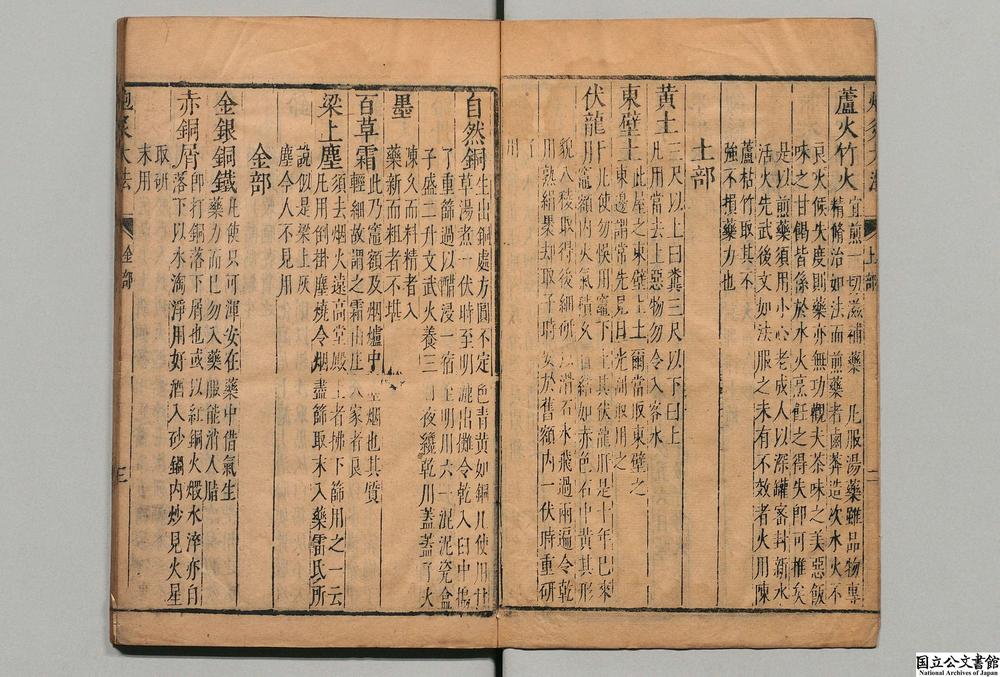 炮炙大法 土部 二
蘆火竹火 宜煎一切滋補藥 凡服湯藥雖品物專
精修治如法而煎藥者鹵莽造次水火不
良火候失度則藥亦無功觀夫茶味之美惡飯
味之甘餲皆係於水火烹飪之得失即可推矣
是以煎藥須用小心老成人以深罐密封新水
活火先武後文如法服之未有不效者火用陳
蘆枯竹取其不
強不損藥力也
土部
黄土 三尺以上曰糞三尺以下曰土
凡用當去上惡物勿令入客水
東壁土 此屋之東壁上土爾當取東壁之
東邊謂常先見日光刮取用之
伏龍肝 凡使勿悞用竈下土其伏龍肝是十年已來
竈額内火氣積久自結如赤色石中黄其形
貌八稜取得後細研以滑石水飛過兩遍令乾
用熟絹裹却取子時安於舊額内一伏時重研
了
用
自然銅 生出銅處方圓不定色青黄如銅凡使用甘
草湯煮一伏時至明漉出攤令乾入臼中搗
了重篩過以醋浸一宿至明用六一泥泥瓷盒
子盛二升文武火養三日夜纔乾用蓋蓋了火
墨 陳久而料精者入
藥新而粗者不堪
百草霜 此乃竈額及烟爐中墨烟也其質
輕細故謂之霜山庄人家者良
梁上塵 須去烟火遠高堂殿上者拂下篩用之一云
凡用倒掛塵燒令烟盡篩取末入藥雷氏所
說似是梁上灰
塵今人不見用
金部
金銀銅鐵 凡使只可渾安在藥中借氣生
藥力而已勿入藥服能消人脂
赤銅屑 即打銅落下屑也或以紅銅火煅水淬亦自
落下以水淘淨用好酒入砂鍋内炒見火星
取研
末用
炮炙大法 金部 三
国立公文書館
National Archives of Japan